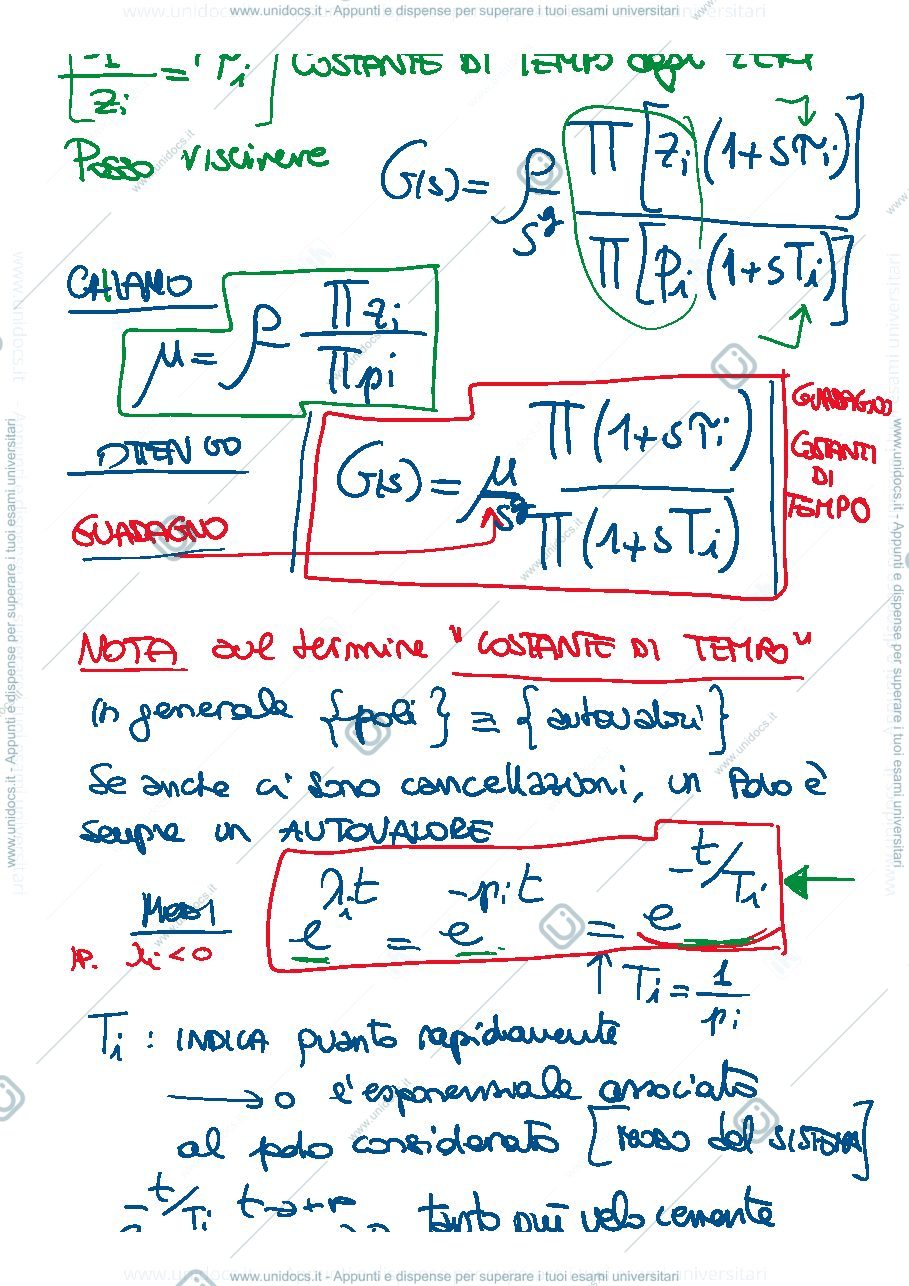 www.unidocs.it - Appunti e dispense per superare i tuoi esami universitari
[-1/zi = τi] COSTANTE DI TEMPO degli ZERI
Posso riscrivere
G(s) = ρ/s^g Π[zi(1+sτi)] / Π[pi(1+sTi)]
CHIAMO
μ = ρ Πzi / Πpi
OTTENGO
G(s) = μ/s^g Π(1+sτi) / Π(1+sTi)
GUADAGNO
COSTANTI
DI
TEMPO
GUADAGNO
NOTA sul termine "COSTANTE DI TEMPO"
in generale {poli} ≡ {autovalori}
Se anche ci sono cancellazioni, un Polo è
sempre un AUTOVALORE
MODI
IP. λi < 0
e^{λit} = e^{-pit} = e^{-t/Ti}
↑ Ti = 1/pi
Ti : INDICA quanto rapidamente
→ 0 l'esponenziale associato
al polo considerato [MODO del SISTEMA]
e^{-t/Ti} t→+∞ tanto più velocemente
www.unidocs.it - Appunti e dispense per superare i tuoi esami universitari